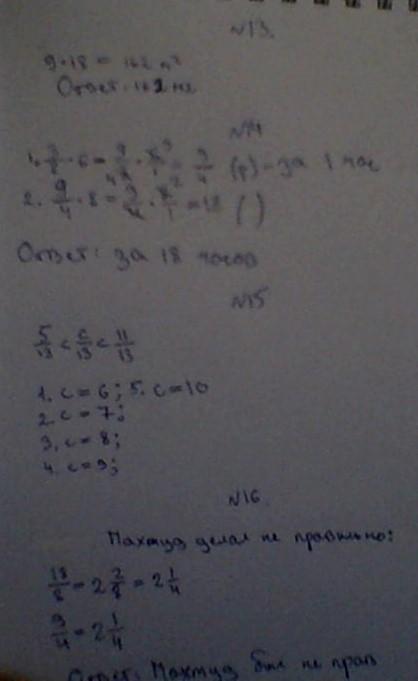 №13.
9·18 = 162 м²
Ответ: 162 м²
№14
1. 3/8 · 6 = 3/8 · 6/1 = 9/4 (р) - за 1 час
2. 9/4 · 8 = 9/4 · 8/1 = 18 ( )
Ответ: за 18 часов
№15
5/13 < c/13 < 11/13
1. c = 6; 5. c = 10
2. c = 7;
3. c = 8;
4. c = 9;
№16.
делал не правильно:
18/8 = 2 2/8 = 2 1/4
9/4 = 2 1/4
Ответ: был не прав